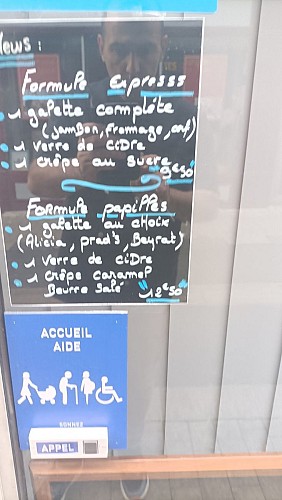 Menus :
Formule Expresss
1 galette complète
(jambon, fromage, œuf)
1 verre de cidre
1 crêpe au sucre
"9€50"
Formule papilles
1 galette au choix
(Alicia, prad's, Beyrat)
1 verre de cidre
1 crêpe caramel
Beurre salé "12€50"
ACCUEIL
AIDE
SONNEZ
APPEL